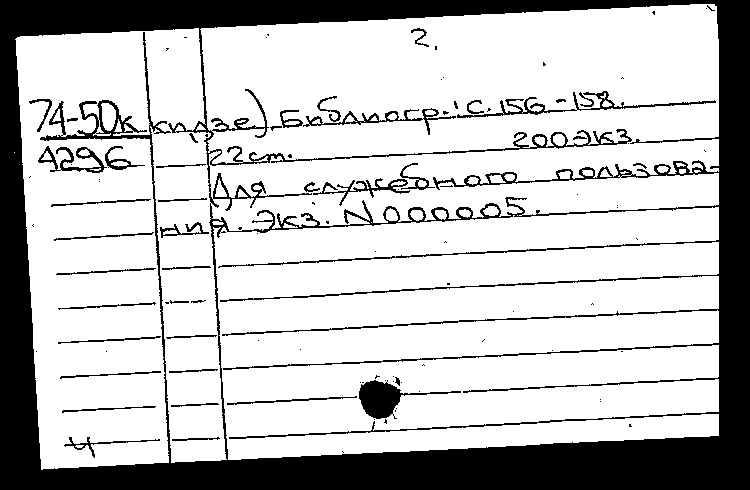 2.
74-50к кидзе). Библиогр.: С. 156-158.
4296 22 cm. 200 экз.
Для служебного пользова-
ния. Экз. N 000005.
ч